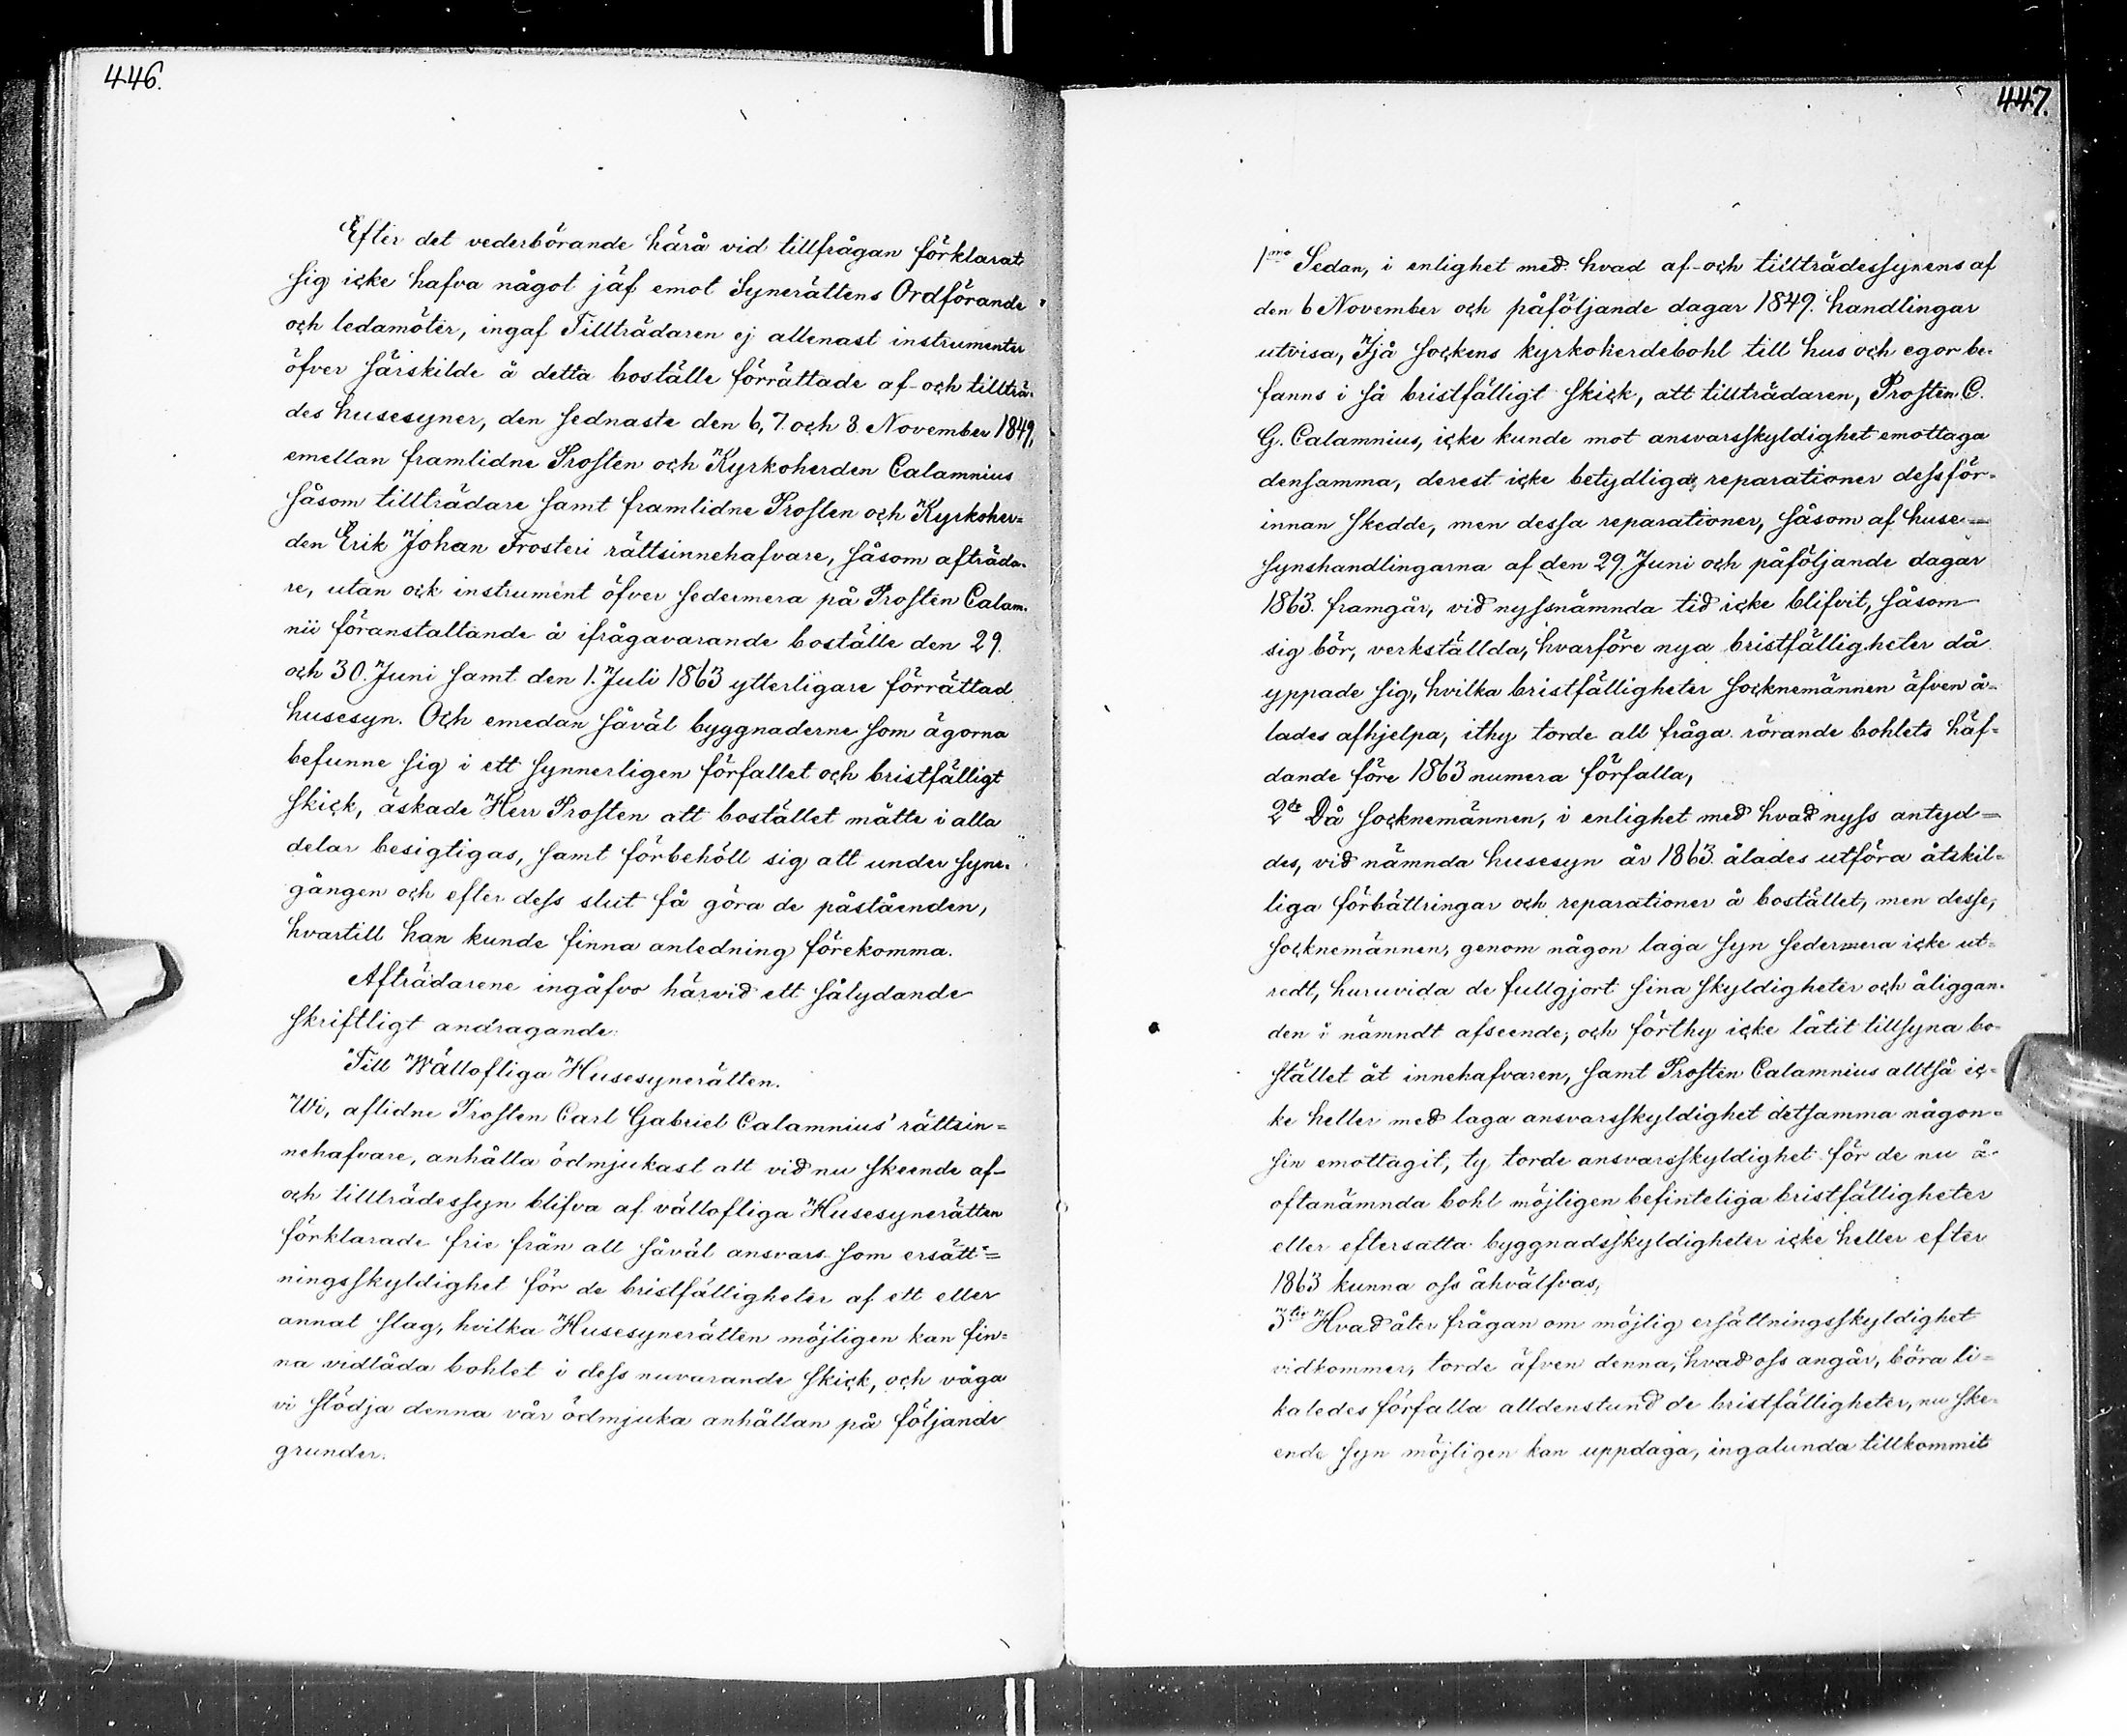 446.
Efter det vederbörande härå vid tillfrågan förklarat
sig icke hafva något jäf emot Synerättens Ordförande
och ledamöter, ingaf Tillträdaren ej allenast instrumenter
öfver särskilde å detta boställe förrättade af- och tillträ-
des husesyner, den sednaste den 6, 7. och 8. November 1849,
emellan framlidne Prosten och Kyrkoherden Calamnius
såsom tillträdare samt framlidne Prosten och Kyrkoher=
den Erik Johan Frosteri rättsinnehafvare, såsom afträda-
re, utan ock instrument öfver sedermera på Prosten Calam-
nii föranstaltande å ifrågavarande boställe den 29.
och 30. Juni samt den 1. Juli 1863 ytterligare förrättad
husesyn. Och emedan såväl byggnaderne som ägorna
befunne sig i ett synnerligen förfallet och bristfälligt
skick, äskade Herr Prosten att bostället måtte i alla
delar besigtigas, samt förbehöll sig att under syne-
gången och efter dess slut få göra de påståenden,
hvartill han kunde finna anledning förekomma.
Afträdarene ingåfvo härvid ett sålydande
skriftligt andragande:
Till Wällofliga Husesynerätten.
Wi, aflidne Prosten Carl Gabriel Calamnius' rättsin=
nehafvare, anhålla ödmjukast att vid nu skeende af-
och tillträdessyn blifva af vällofliga Husesynerätten
förklarade frie från all såväl ansvars- som ersätt=
ningsskyldighet för de bristfälligheter af ett eller
annat slag, hvilka Husesynerätten möjligen kan fin=
na vidlåda bohlet i dess nuvarande skick, och våga
vi stödja denna vår ödmjuka anhållan på följande
grunder.
447.
1mo Sedan, i enlighet med hvad af- och tillträdessynens af
den 6 November och påföljande dagar 1849. handlingar
utvisa, Ijå sockens kyrkoherdebohl till hus och egor be-
fanns i så bristfälligt skick, att tillträdaren, Prosten C.
G. Calamnius, icke kunde mot ansvarsskyldighet emottaga
densamma, derest icke betydliga reparationer dessför-
innan skedde, men dessa reparationer, såsom af huse=
synshandlingarna af den 29. Juni och påföljande dagar
1863. framgår, vid nyssnämnda tid icke blifvit, såsom
sig bör, verkställda, hvarföre nya bristfälligheter då
yppade sig, hvilka bristfälligheter socknemännen äfven å-
lades afhjelpa, ithy torde all fråga rörande bohlets häf-
dande före 1863 numera förfalla,
2do Då socknemännen, i enlighet med hvad nyss antyd=
des, vid nämnda husesyn år 1863. ålades utföra åtskil-
liga förbättringar och reparationer å bostället, men desse,
socknemännen, genom någon laga syn sedermera icke ut-
redt, huruvida de fullgjort sina skyldigheter och åliggan-
den i nämndt afseende, och förthy icke låtit tillsyna bo-
stället åt innehafvaren, samt Prosten Calamnius alltså ic-
ke heller med laga ansvarsskyldighet detsamma någon=
sin emottagit, ty torde ansvarsskyldighet för de nu å
oftanämnda bohl möjligen befinteliga bristfälligheter
eller eftersatta byggnadsskyldigheter icke heller efter
1863 kunna oss åhvälfvas,
3tio Hvad åter frågan om möjlig ersättningsskyldighet
vidkommer, torde äfven denna, hvad oss angår, böra li-
kaledes förfalla alldenstund de bristfälligheter, nu ske-
ende syn möjligen kan uppdaga, ingalunda tillkommit